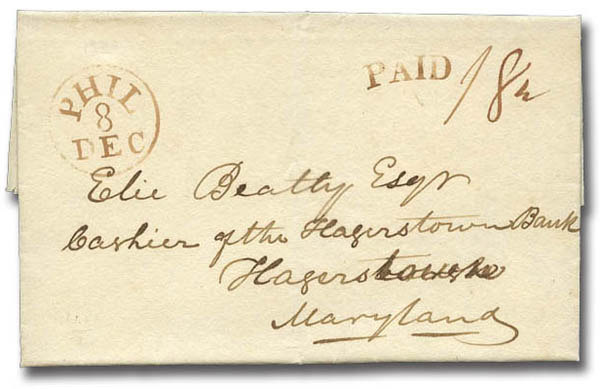 PHIL
8
DEC
PAID 18½
Elie Beatty Esqr
Cashier of the Hagerstown Bank
Hagerstown
Maryland